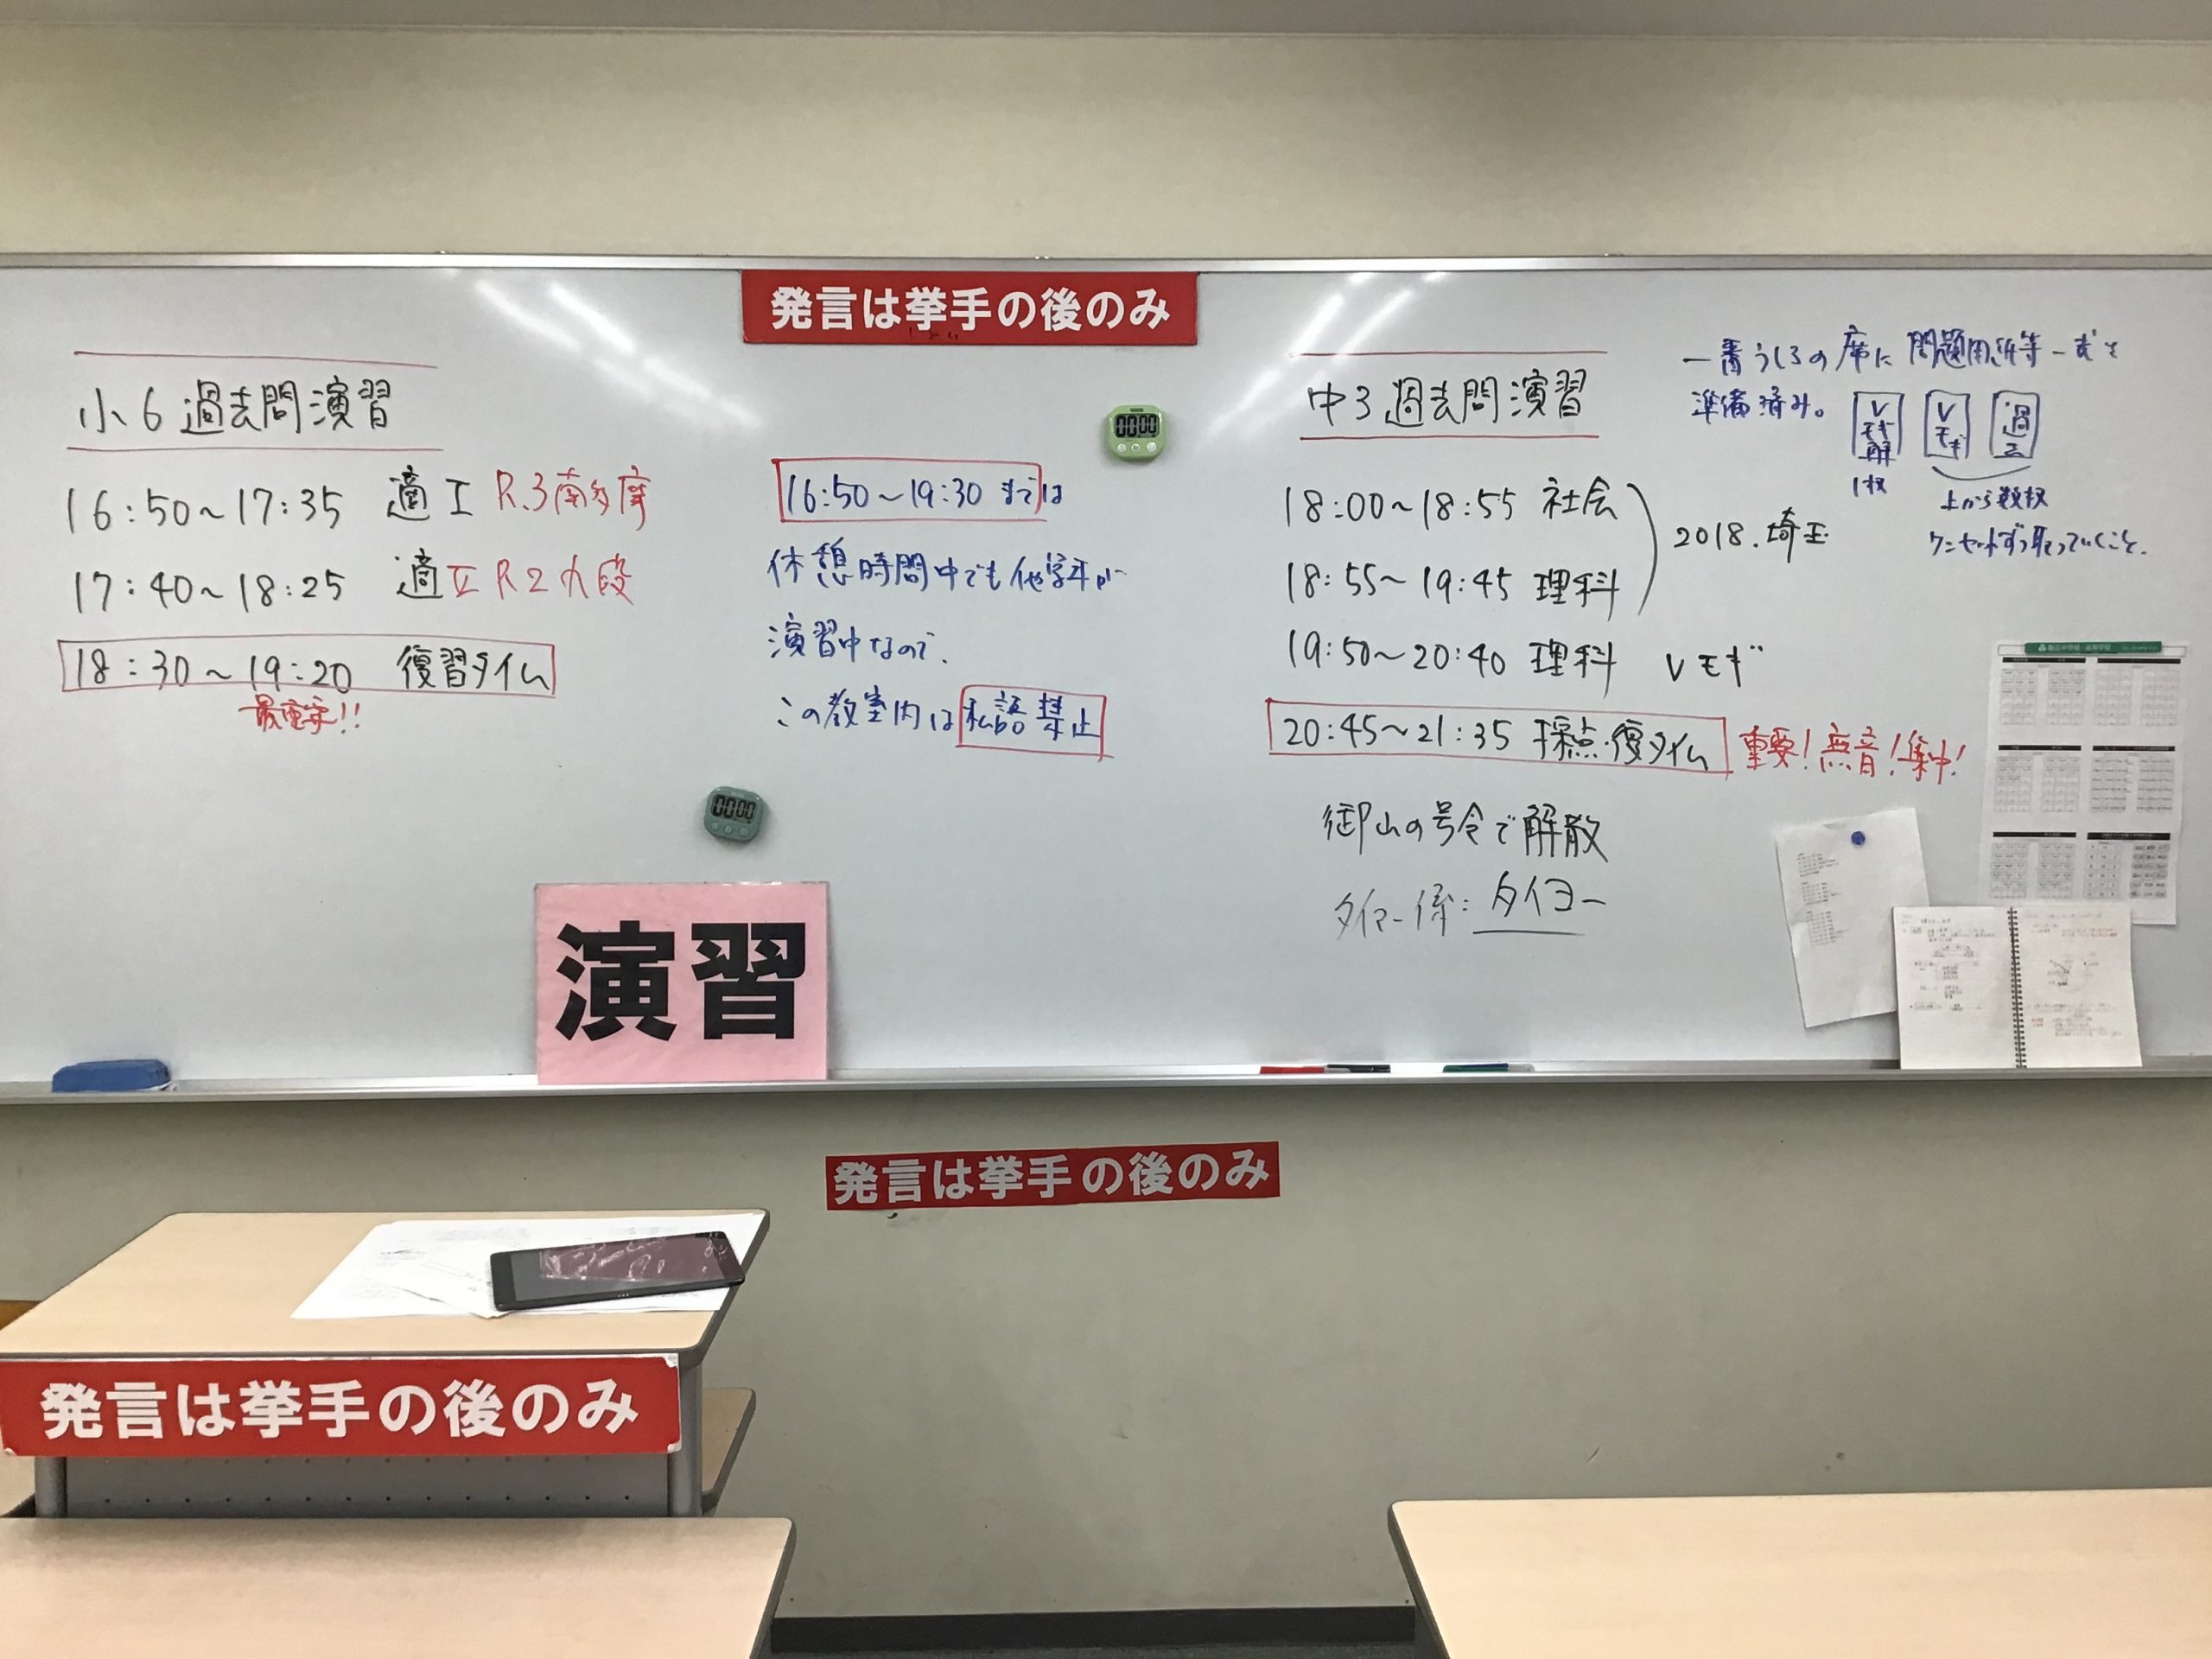 発言は挙手の後のみ
小6 過去問演習
16:50～17:35 適Ⅰ R.3南多摩
17:40～18:25 適Ⅱ R2 九段
18:30～19:20 復習タイム
最重要!!
16:50～19:30 までは
休憩時間中でも他学年が
演習中なので、
この教室内は私語禁止
中3 過去問演習
18:00～18:55 社会
18:55～19:45 理科
2018.埼玉
19:50～20:40 理科 Vモギ
20:45～21:35 採点・復タイム 重要!無音!集中!
御山の号令で解散
タイマー係: タイヨー
一番うしろの席に問題用紙等一式を
準備済み。
Vモギ解
Vモギ
過去
1枚
上から数枚
ワンセットずつ取っていくこと。
演習
発言は挙手の後のみ
発言は挙手の後のみ
00:00
00:00